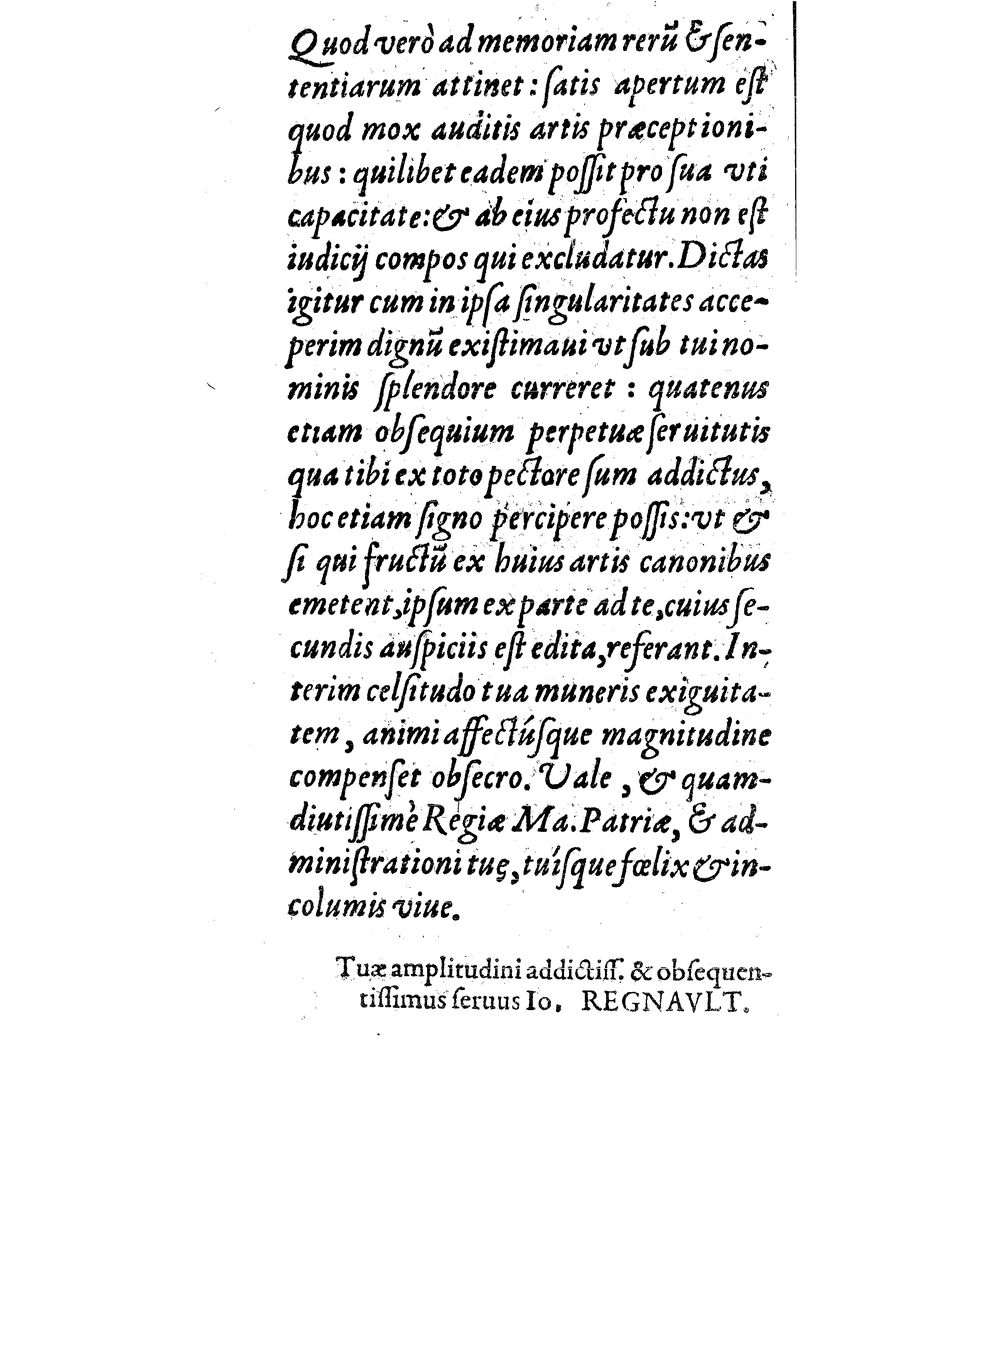 Quod verò ad memoriam rerũ & ſen-
tentiarum attinet : ſatis apertum eſt
quod mox auditis artis præceptioni-
bus : quilibet eadem poſſit pro ſua vti
capacitate:& ab eius profectu non eſt
iudicij compos qui excludatur. Dictas
igitur cum in ipſa ſingularitates acce-
perim dignũ exiſtimaui vt ſub tui no-
minis ſplendore curreret : quatenus
etiam obſequium perpetuæ ſeruitutis
qua tibi ex toto pectore ſum addictus,
hoc etiam ſigno percipere poſſis: vt &
ſi qui fructũ ex huius artis canonibus
emetent, ipſum ex parte ad te, cuius ſe-
cundis auſpiciis eſt edita, referant. In-
terim celſitudo tua muneris exiguita-
tem, animi affectúſque magnitudine
compenſet obſecro. Vale , & quam-
diutiſſimè Regiæ Ma. Patriæ, & ad-
miniſtrationi tuę, tuíſque fœlix & in-
columis viue.
Tuæ amplitudini addictiſſ. & obſequen-
tiſſimus ſeruus Io. REGNAVLT.